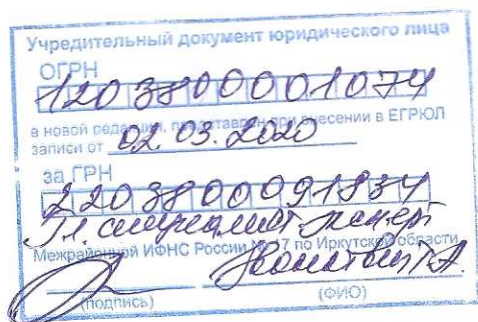 Учредительный документ юридического лица
ОГРН
1203800001074
в новой редакции, представлен при внесении в ЕГРЮЛ
записи от 02.03.2020
за ГРН
2203800091834
Гл. специалист-эксперт
Межрайонной ИФНС России № 17 по Иркутской области
(подпись) (ФИО)